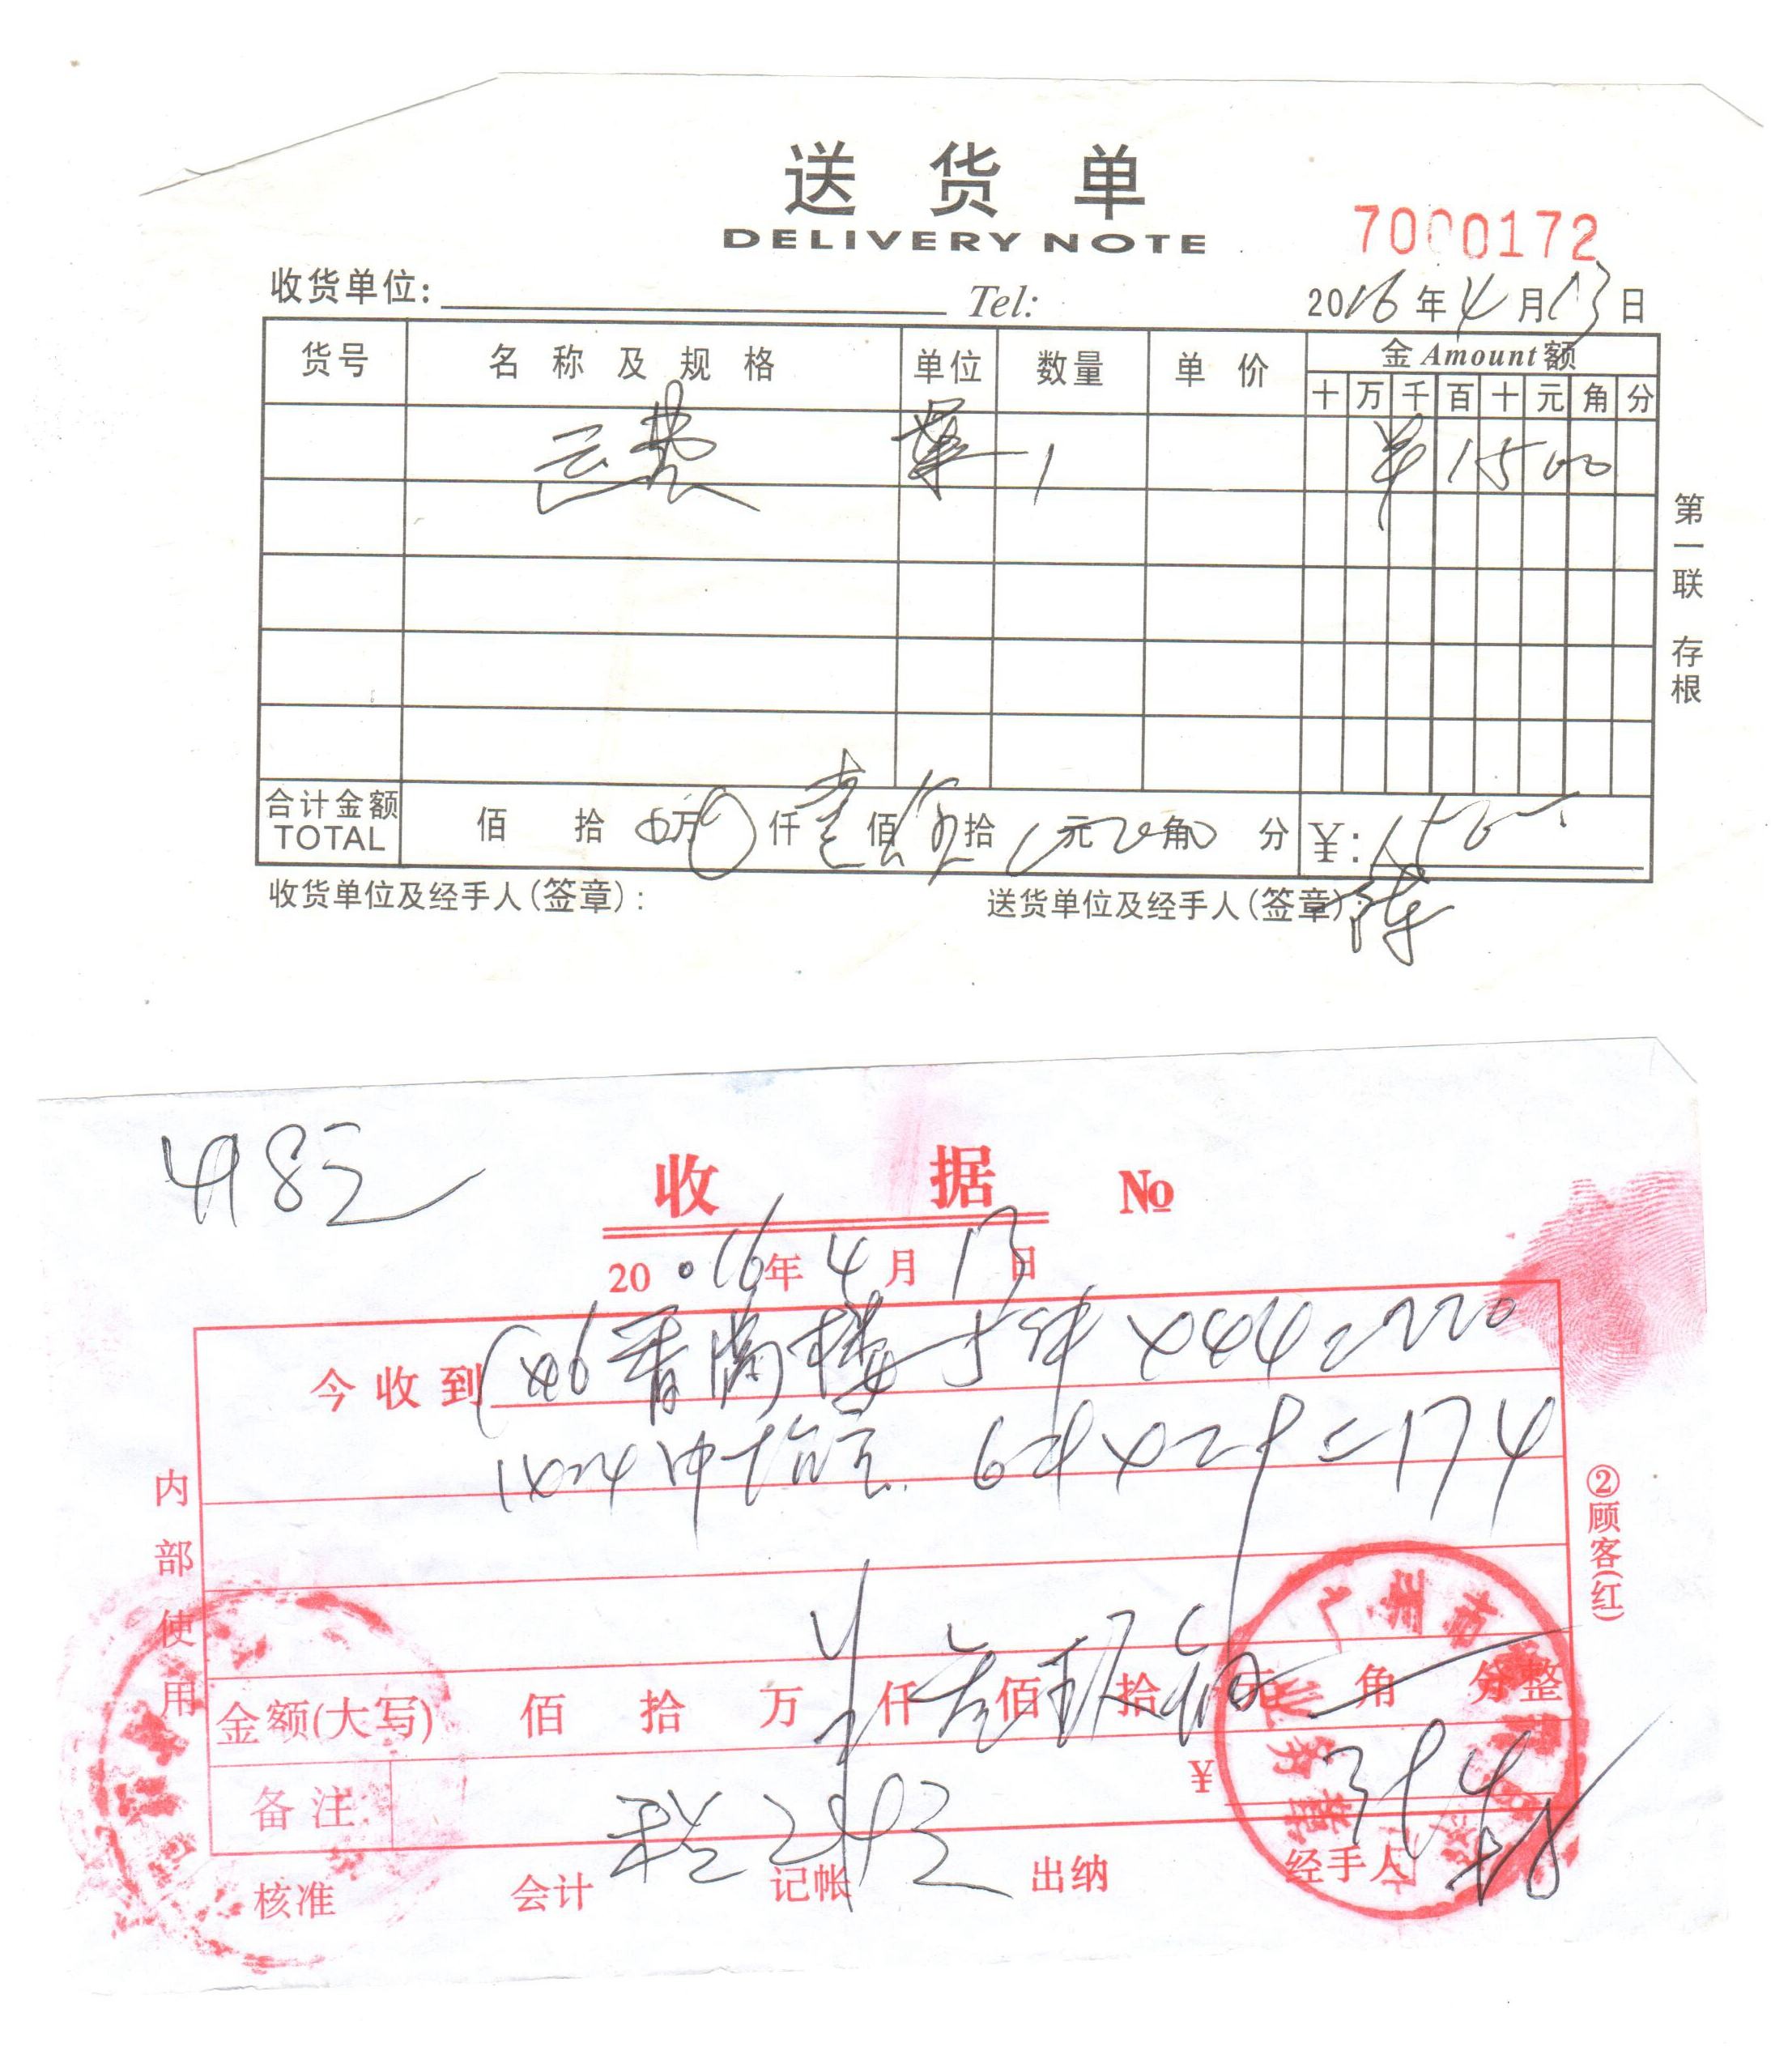 送货单
DELIVERY NOTE
7000172
收货单位： Tel: 2016年4月13日
货号 名称及规格 单位 数量 单价 金Amount额
十 万 千 百 十 元 角 分
运费 单 1 150 00
第一联 存根
合计金额 TOTAL 佰 拾 万 仟 壹 佰 伍 拾 元 角 分 ¥: 150
收货单位及经手人(签章)： 送货单位及经手人(签章)： 陈
418元
收据 №
2016年4月13日
今收到 香满楼 5件×44=220
1×24 6件×29=174
内部使用
②顾客(红)
金额(大写) 佰 拾 万 仟 佰 拾 元 角 分整
备注 ¥ 394
税24元
核准 会计 记帐 出纳 经手人
广州市